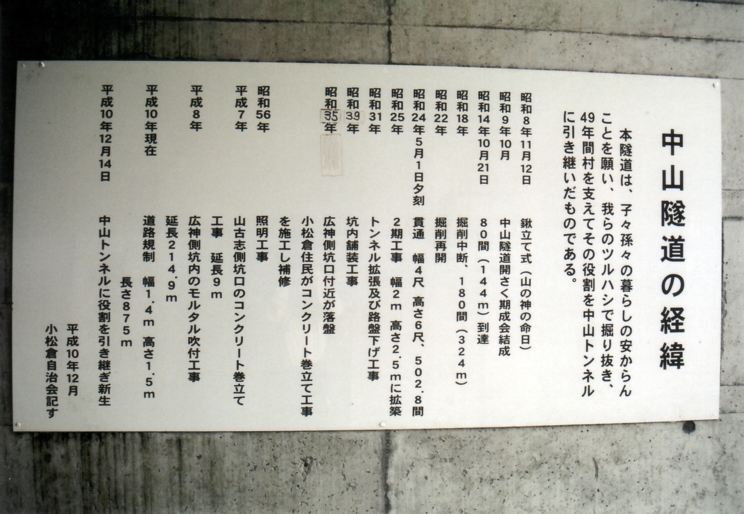 中山隧道の経緯
本隧道は、子々孫々の暮らしの安からん
ことを願い、我らのツルハシで掘り抜き、
49年間村を支えてその役割を中山トンネル
に引き継いだものである。
昭和8年11月12日 鍬立て式（山の神の命日）
昭和9年10月 中山隧道開さく期成会結成
昭和14年10月21日 80間（144m）到達
昭和18年 掘削中断、180間（324m）
昭和22年 掘削再開
昭和24年5月1日夕刻 貫通 幅4尺、高さ6尺、502.8間
昭和25年 2期工事 幅2m 高さ2.5mに拡築
昭和31年 トンネル拡張及び路盤下げ工事
昭和39年 坑内舗装工事
昭和35年 広神側坑口付近が落盤
小松倉住民がコンクリート巻立て工事
を施工し補修
昭和56年 照明工事
平成7年 山古志側坑口のコンクリート巻立て
工事 延長9m
平成8年 広神側坑内のモルタル吹付工事
延長214.9m
平成10年現在 道路規制 幅1.4m 高さ1.5m
長さ875m
平成10年12月14日 中山トンネルに役割を引き継ぎ新生
平成10年12月
小松倉自治会記す